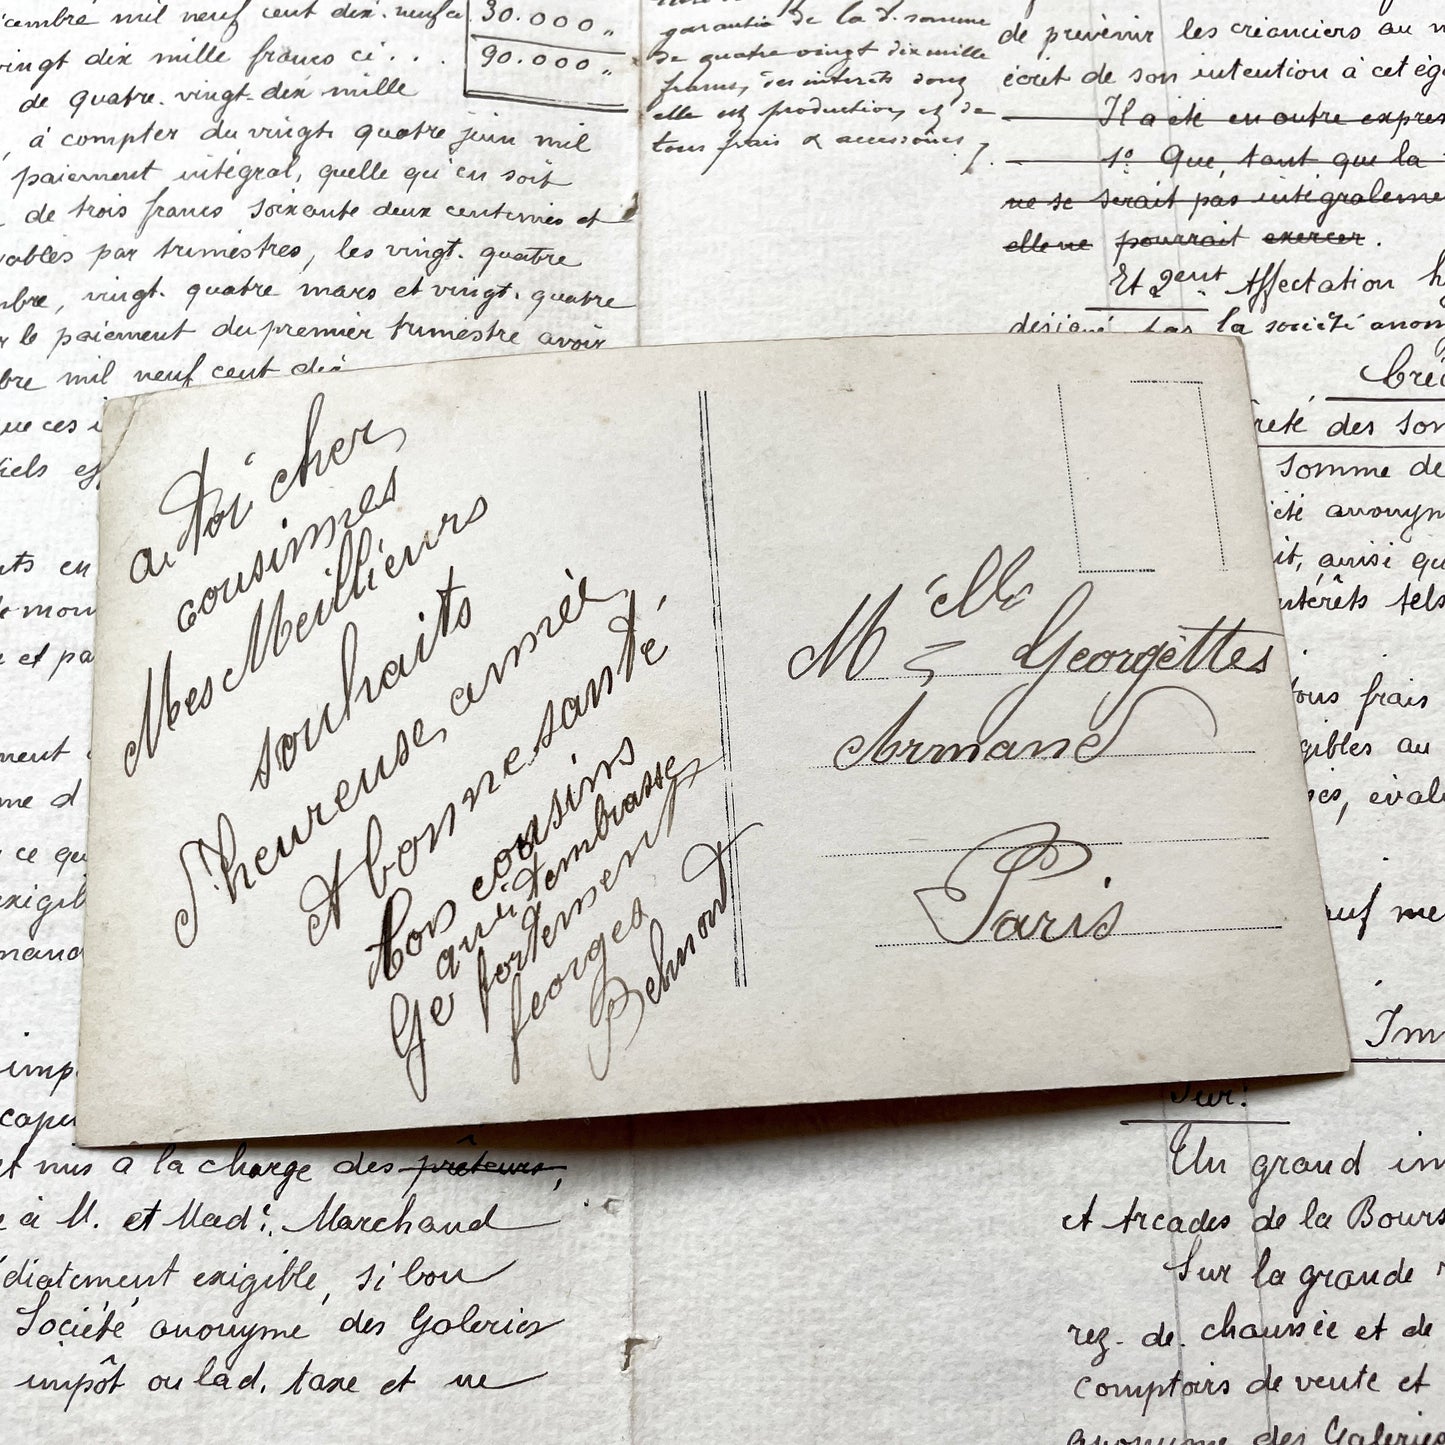 cembre mil neuf cent dix. neuf a
vingt dix mille francs ci . . .
de quatre. vingt-dix mille
, à compter du vingt quatre juin mil
paiement intégral, quelle qu'en soit
de trois francs soixante deux centimes et
vables par trimestres, les vingt. quatre
mbre, vingt. quatre mars et vingt. quatre
r le paiement du premier trimestre avoir
bre mil neuf cent dix
que ces i
iels ef
30.000 "
90.000 "
garantie de la d. somme
de quatre vingt dix mille
francs, des intérêts dong
elle est production, et de
tous frais & accessoires /.
de prévenir les créanciers au m
écrit de son intention à cet éga
Il a été en outre expres
1º Que, tant que la
ne se serait pas intégraleme
elle ne pourrait exercer.
Et 2ent Affectation h
désigné par la société anony
Cré
reté des som
somme de
iété anonym
it, ainsi qu
intérêts tels
tous frais
gibles au
ses, évalu
auf me
Imm
Sur:
Un grand im
et Arcades de la Bours
Sur la grande r
rez. de. chaussée et de
comptoirs de vente et
anonyme des Galeries
ts en
de mon
e et pa
ment
me d
ce qu
exigib
mand
imp
capi
et mis à la charge des prêteurs,
e à M. et Made. Marchand
édiatement exigible, si bon
Société anonyme des Galeries
impôt ou lad. taxe et ne
a. Toi cher
cousinnes
Mes Meillieurs
souhaits
d'heureuse, année
et bonne santé,
ton cousins
qui t'embrasse
Ge fortement
Georges
Belmont
Melle Georgèttes
Armand
Paris